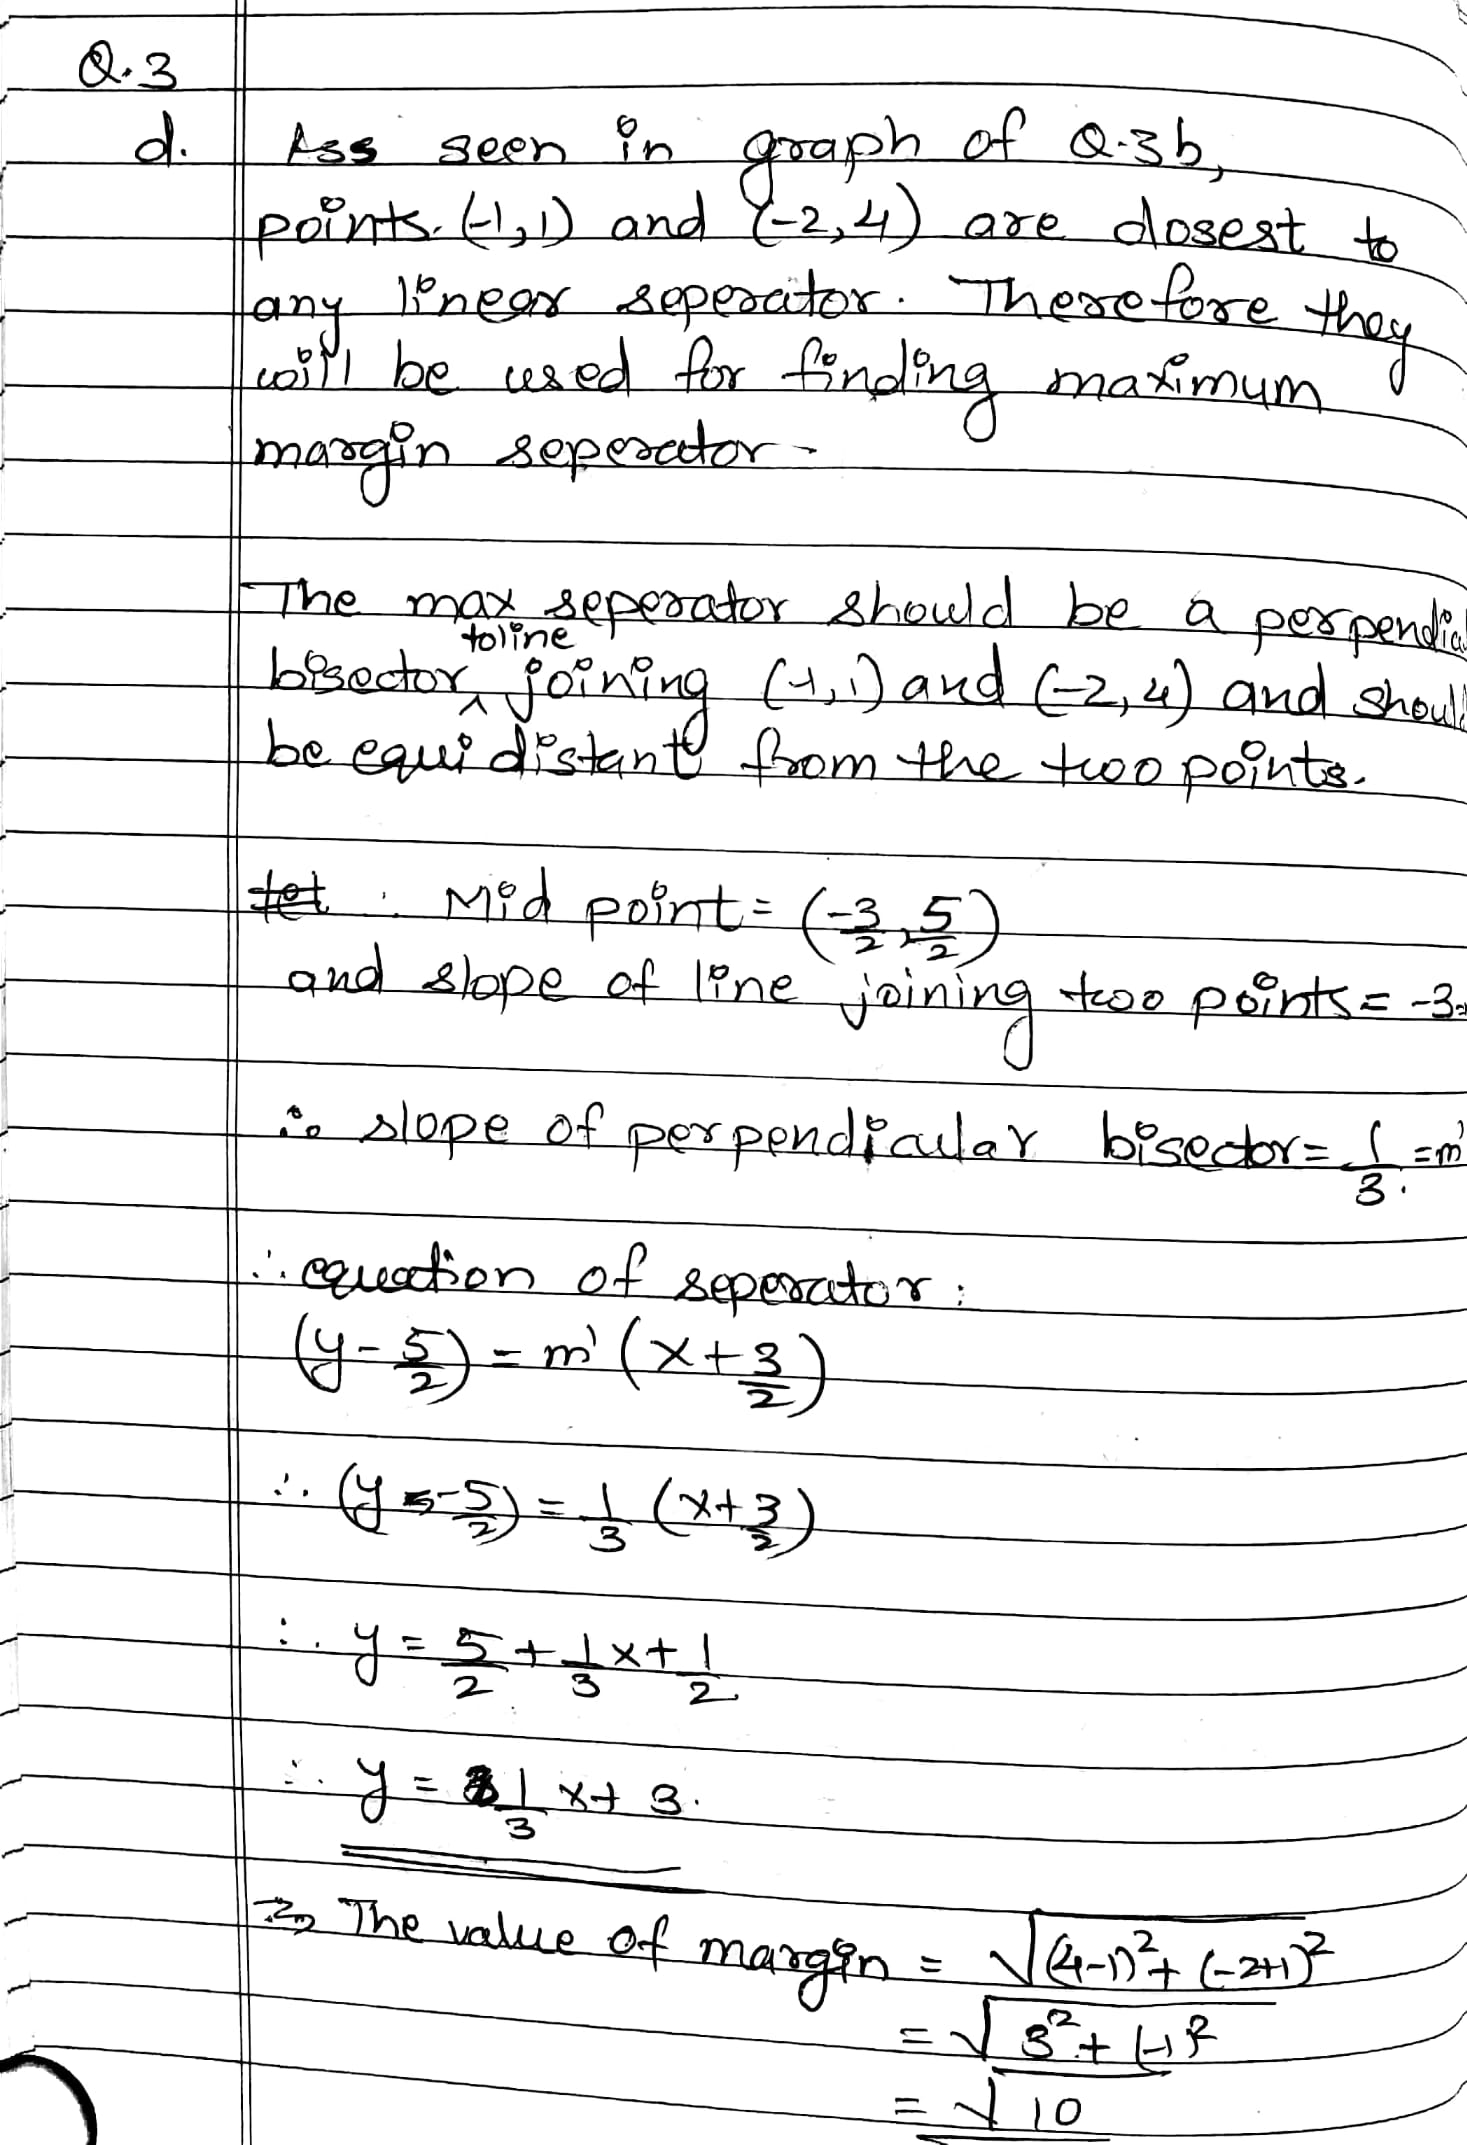 Q.3
d. Ass seen in graph of Q.3b,
points. (-1,1) and (-2,4) are closest to
any linear seperator. Therefore they
will be used for finding maximum
margin seperator.
The max seperator should be a perpendic
to line
bisector ^ joining (-1,1) and (-2,4) and should
be equidistant from the two points.
Mid point = (-3/2, 5/2)
and slope of line joining two points = -3
∴ slope of perpendicular bisector = 1/3. = m'
∴ equation of seperator :
(y - 5/2) = m' (x + 3/2)
∴ (y - 5/2) = 1/3 (x + 3/2)
∴ y = 5/2 + 1/3 x + 1/2
∴ y = 1/3 x + 3.
The value of margin = √((4-1)² + (-2+1)²)
= √(3² + (-1)²)
= √10